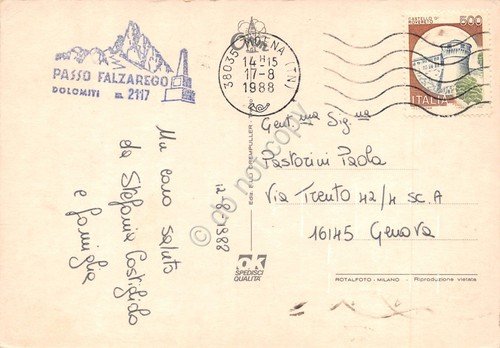 PASSO FALZAREGO
DOLOMITI m. 2117
38035 MOENA (TN)
14-15
17-8
1988
CASTELLO DI
ROVERETO
500
ITALIA
Un caro saluto
da Stefania
e famiglia
12-8-1988
Gent.ma Sig.na
Pastorini Paola
Via Trento 42/4 sc. A
16145 Genova
do not copy
OK
SPEDISCI
QUALITÀ
ROTALFOTO - MILANO - Riproduzione vietata